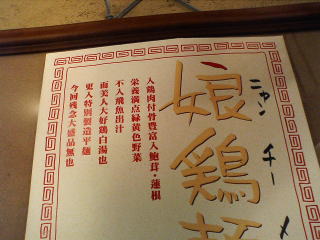 娘鶏麺
ニャンチーメ
入鶏肉付骨豊富入鮑茸・蓮根
栄養満点緑黄色野菜
不入飛魚出汁
而美人大好鶏白湯也
更入特別製造平麺
今回残念大盛品無也